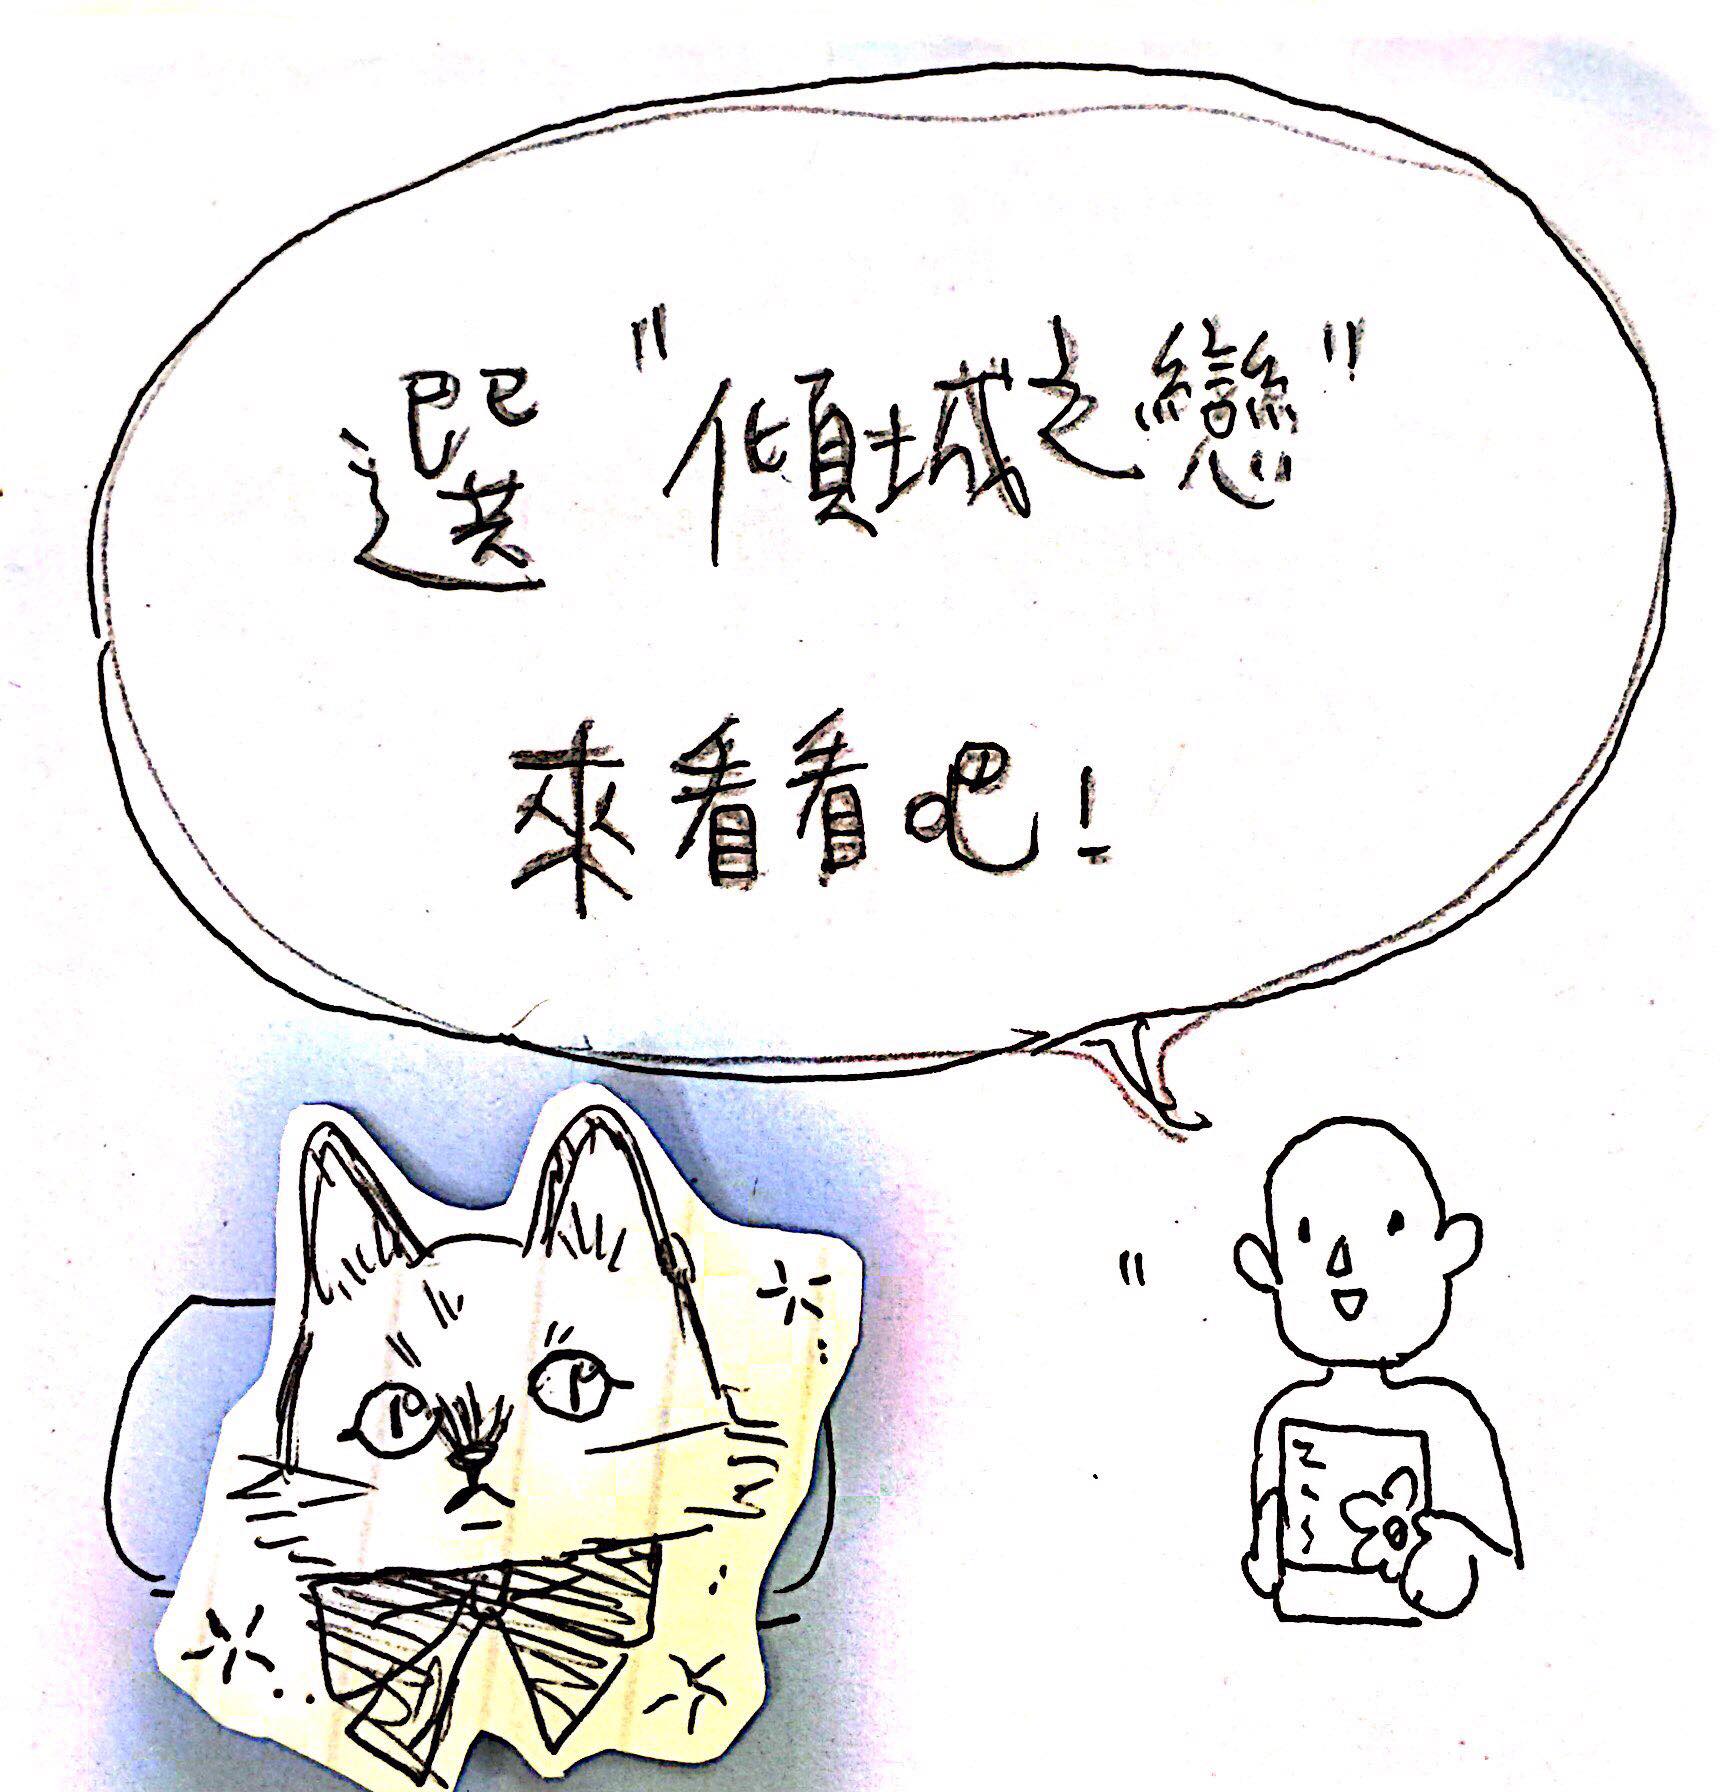 選"傾城之戀"
來看看吧!